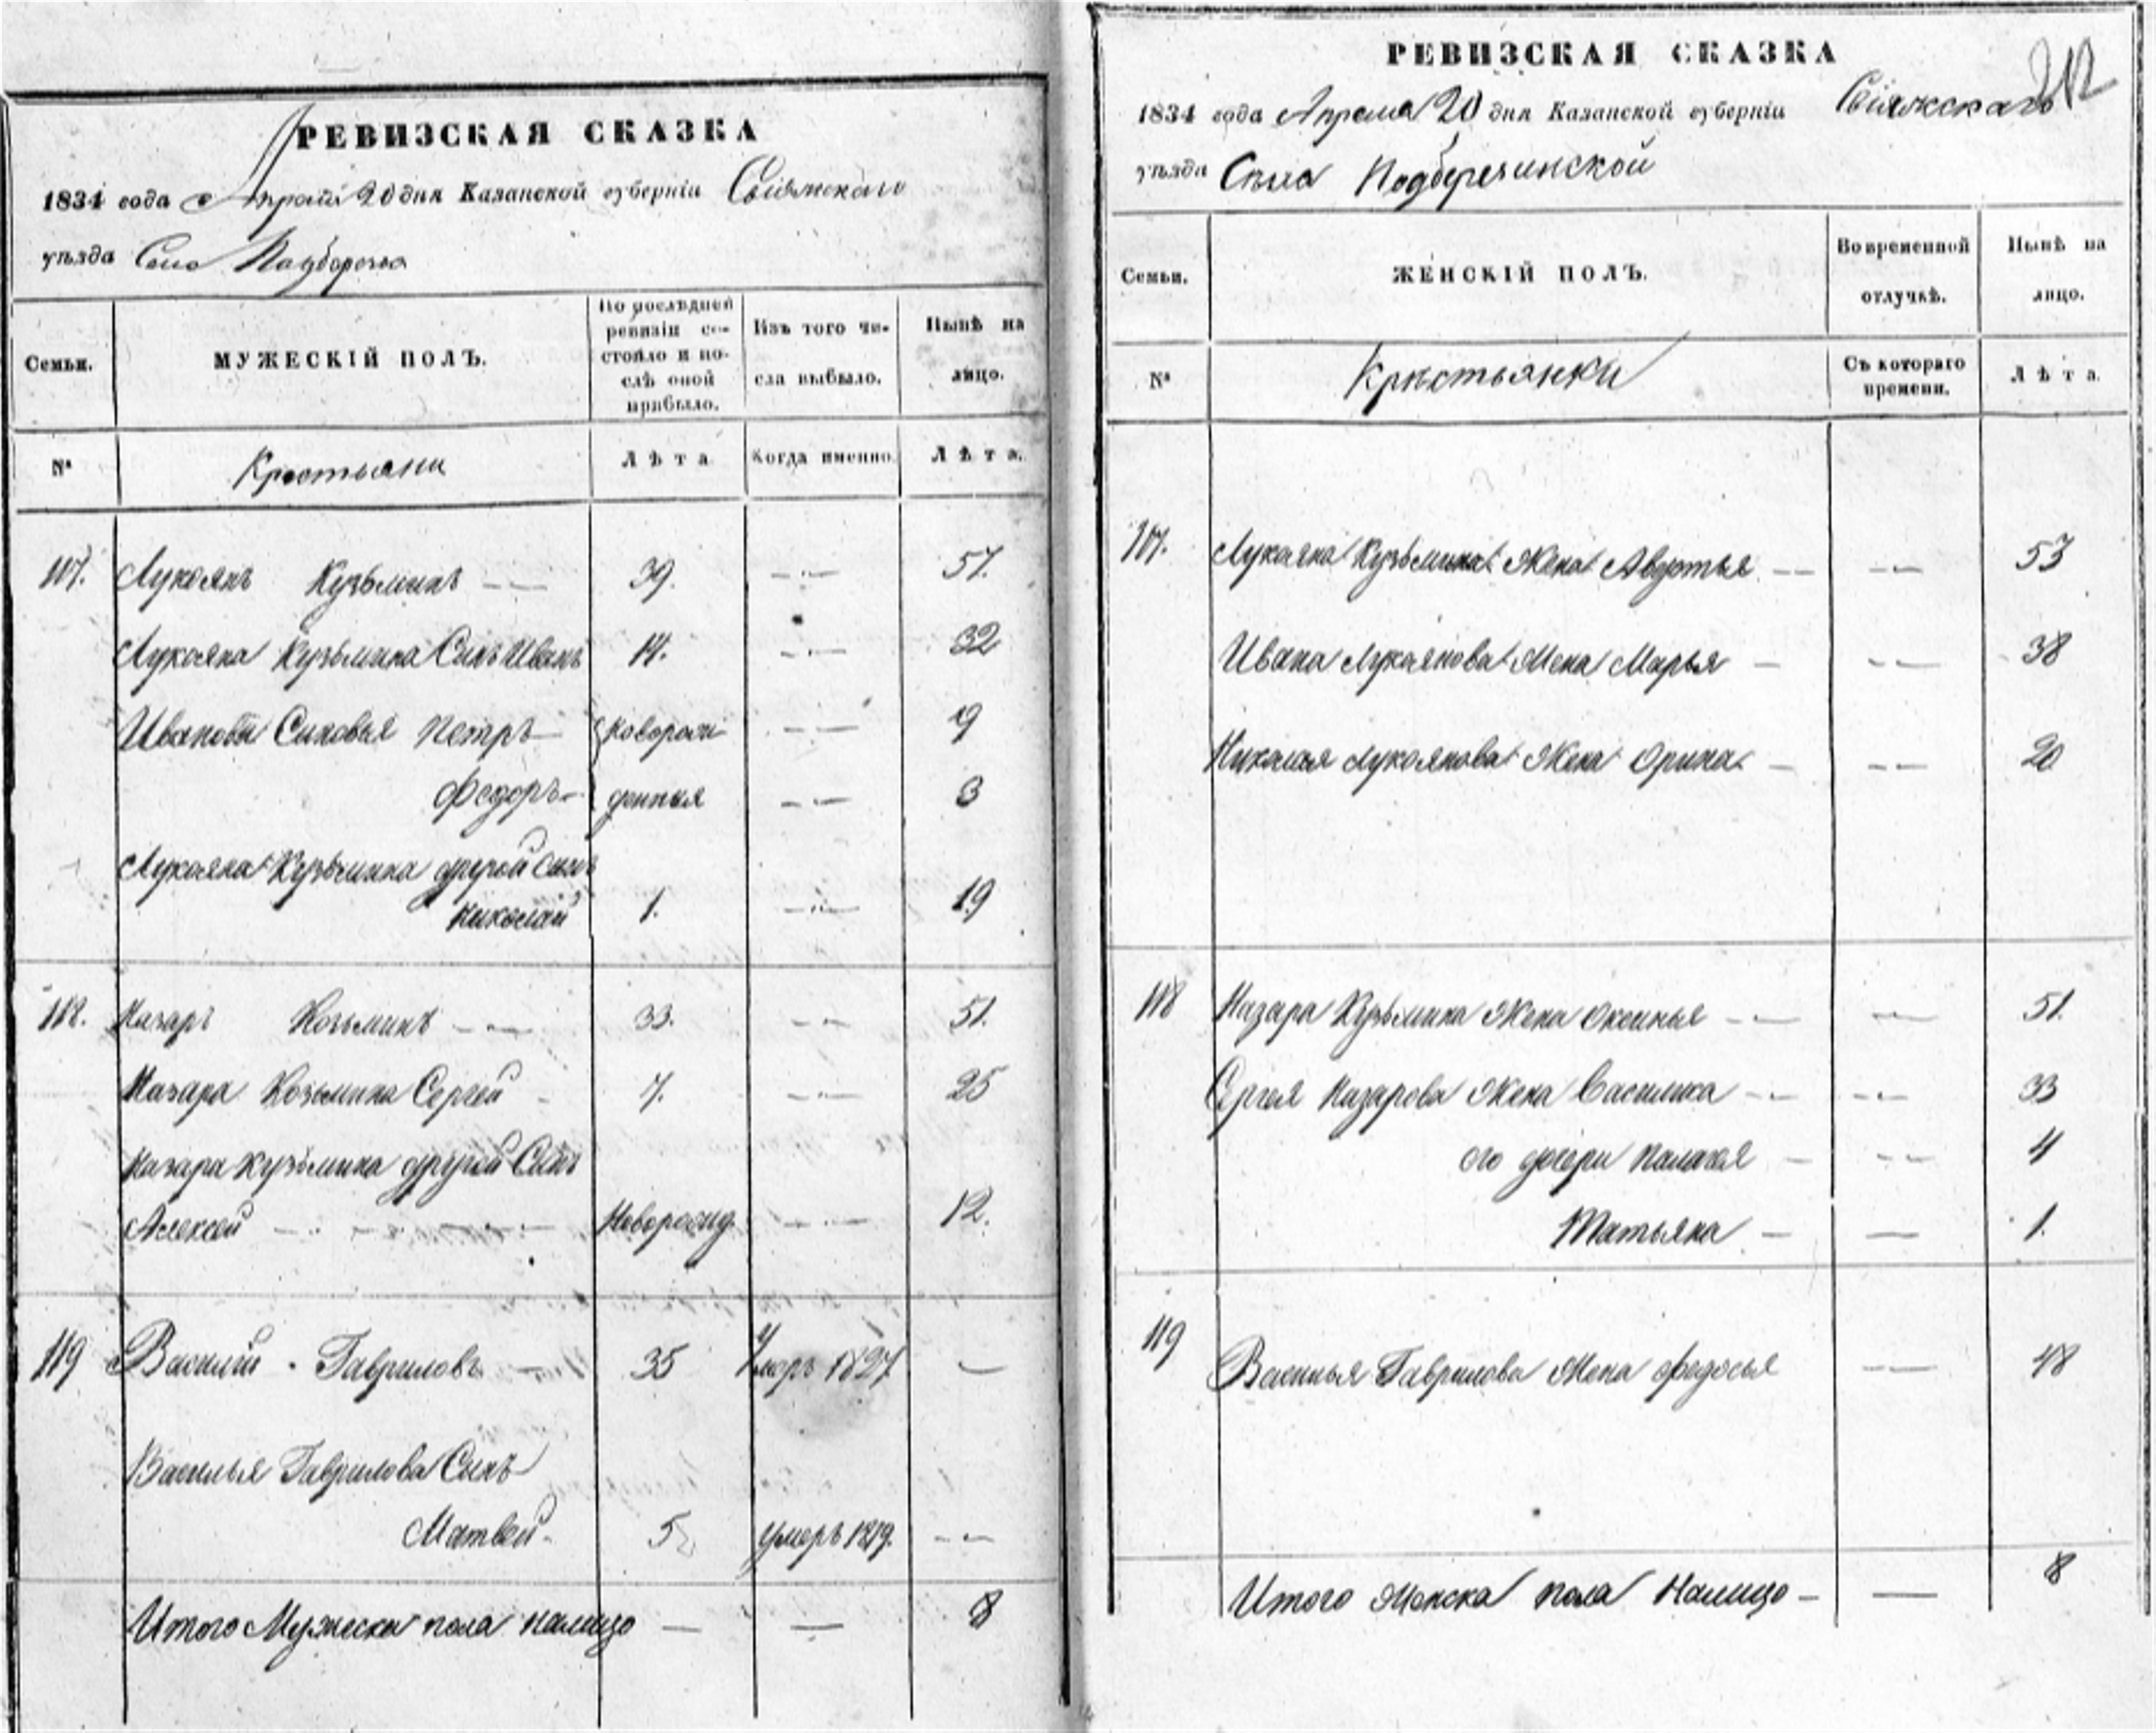 РЕВИЗСКАЯ СКАЗКА
1834 года Апреля 20 дня Казанской губерніи Свіяжскаго
уѣзда Село Подберезья
Семьи.
МУЖЕСКІЙ ПОЛЪ.
По послѣдней ревизіи состояло и послѣ оной прибыло.
Изъ того числа выбыло.
Нынѣ на лицо.
№
Крестьяни
Лѣта
Когда именно.
Лѣта.
117. Лукоянъ Кузьминъ 39. 57.
Лукояна Кузьмина Сынъ Иванъ 14. 32
Ивановы Сыновья Петръ новорож 9
Федоръ денныя 3
Лукояна Кузьмина другой сынъ
Николай 1. 19
118. Назаръ Козьминъ 33. 51.
Назара Козьмина Сергей 7. 25
Назара Кузьмина другой Сынъ
Алексей Новорожд. 12.
119 Василій Гавриловъ 35 Умеръ 1827 —
Василья Гаврилова Сынъ
Матвей 5 умеръ 1819.
Итого Мужеска пола налицо — — 8
РЕВИЗСКАЯ СКАЗКА
212
1834 года Апреля 20 дня Казанской губерніи Свіяжскаго
уѣзда Села
Семьи.
ЖЕНСКІЙ ПОЛЪ.
Во временной отлучкѣ.
Нынѣ на лицо.
№
Крѣстьянки
Съ котораго времени.
Лѣта.
117. Лукояна Кузьмина Жена Авдотья 53
Ивана Лукоянова Жена Марья 38
Николая Лукоянова Жена Орина 20
118 Назара Кузьмина Жена Оксинья 51.
Сергея Назарова Жена Василиса 33
его дочери Палагея 4
Татьяна 1.
119 Василья Гаврилова Жена Федосья 48
Итого Женска пола Налицо — — 8